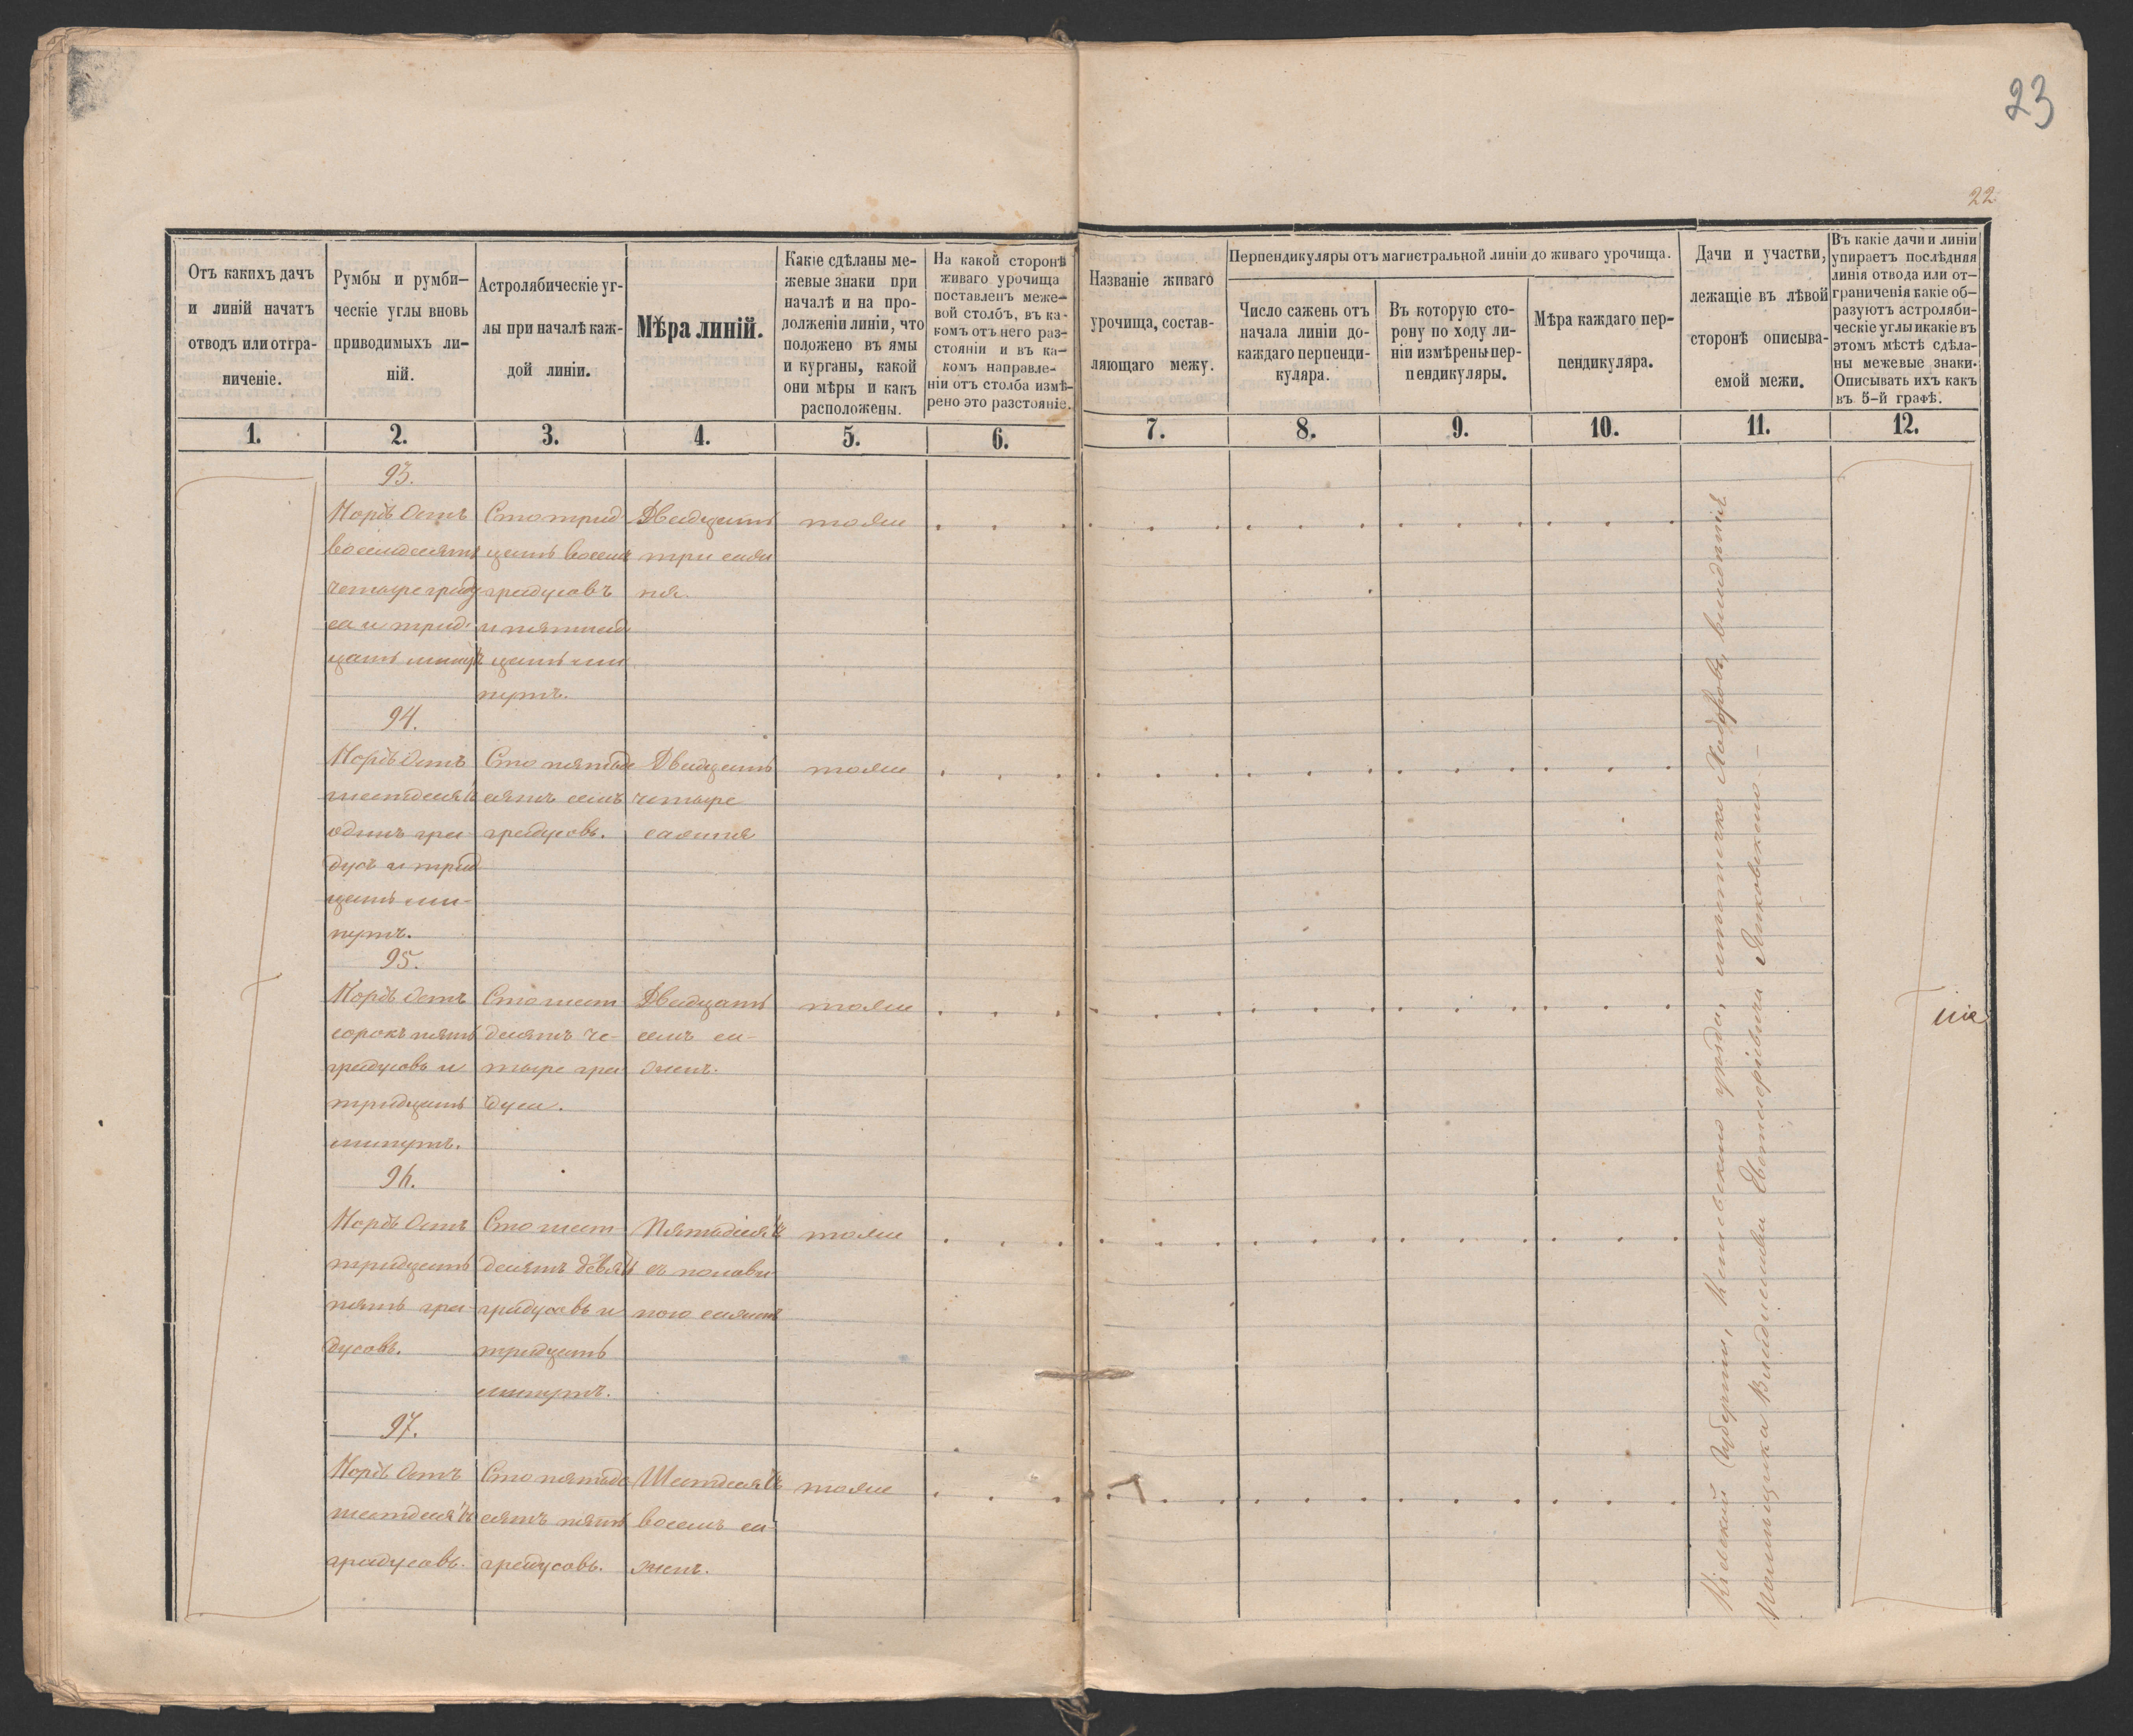 23
22
Отъ какихъ дачъ
и линій начатъ
отводъ или отгра-
ниченіе.
Румбы и румби-
ческіе углы вновь
приводимыхъ ли-
ній.
Астролябическіе уг-
лы при началѣ каж-
дой линіи.
Мѣра линій.
Какіе сдѣланы ме-
жевые знаки при
началѣ и на про-
долженіи линіи, что
положено въ ямы
и курганы, какой
они мѣры и какъ
расположены.
На какой сторонѣ
живаго урочища
поставленъ меже-
вой столбъ, въ ка-
комъ отъ него раз-
стояніи и въ ка-
комъ направле-
ніи отъ столба измѣ-
рено это разстояніе.
Названіе живаго
урочища, состав-
ляющаго межу.
Перпендикуляры отъ магистральной линіи до живаго урочища.
Число сажень отъ
начала линіи до-
каждаго перпенди-
куляра.
Въ которую сто-
рону по ходу ли-
ніи измѣрены пер-
пендикуляры.
Мѣра каждаго пер-
пендикуляра.
Дачи и участки,
лежащіе въ лѣвой
сторонѣ описыва-
емой межи.
Въ какіе дачи и линіи
упираетъ послѣдняя
линія отвода или от-
граниченія какіе об-
разуютъ астроляби-
ческіе углы и какіе въ
этомъ мѣстѣ сдѣла-
ны межевые знаки.
Описывать ихъ какъ
въ 5-й графѣ.
1. 2. 3. 4. 5. 6. 7. 8. 9. 10. 11. 12.
93.
Нордъ Остъ
восемдесятъ
четыре граду
са и трид-
цать минутъ
Сто трид-
цать восемь
градусовъ
и пятнад
цать ми
нутъ.
Двадцать
три саже
ня.
тоже
94.
Нордъ Остъ
шестдесятъ
одинъ гра-
дусъ и трид
цать ми-
нутъ.
Сто пятьде
сятъ семь
градусовъ.
Двадцать
четыре
сажня
тоже
95.
Нордъ Остъ
сорокъ пять
градусовъ и
тридцать
минутъ.
Сто шест
десятъ че-
тыре гра-
дуса.
Двадцать
семь са-
жень.
тоже
96.
Нордъ Остъ
тридцать
пять гра-
дусовъ.
Сто шест
десятъ девять
градусовъ и
тридцать
минутъ.
Пятьдесятъ
съ полови
ною сажень
тоже
97.
Нордъ Остъ
шестдесятъ
градусовъ.
Сто пятьде
сятъ пять
градусовъ.
Шестдесятъ
восемь са-
жень.
тоже
Кіевской губерніи, уѣзда, владѣнія
Помѣщика Владислава Янковскаго —